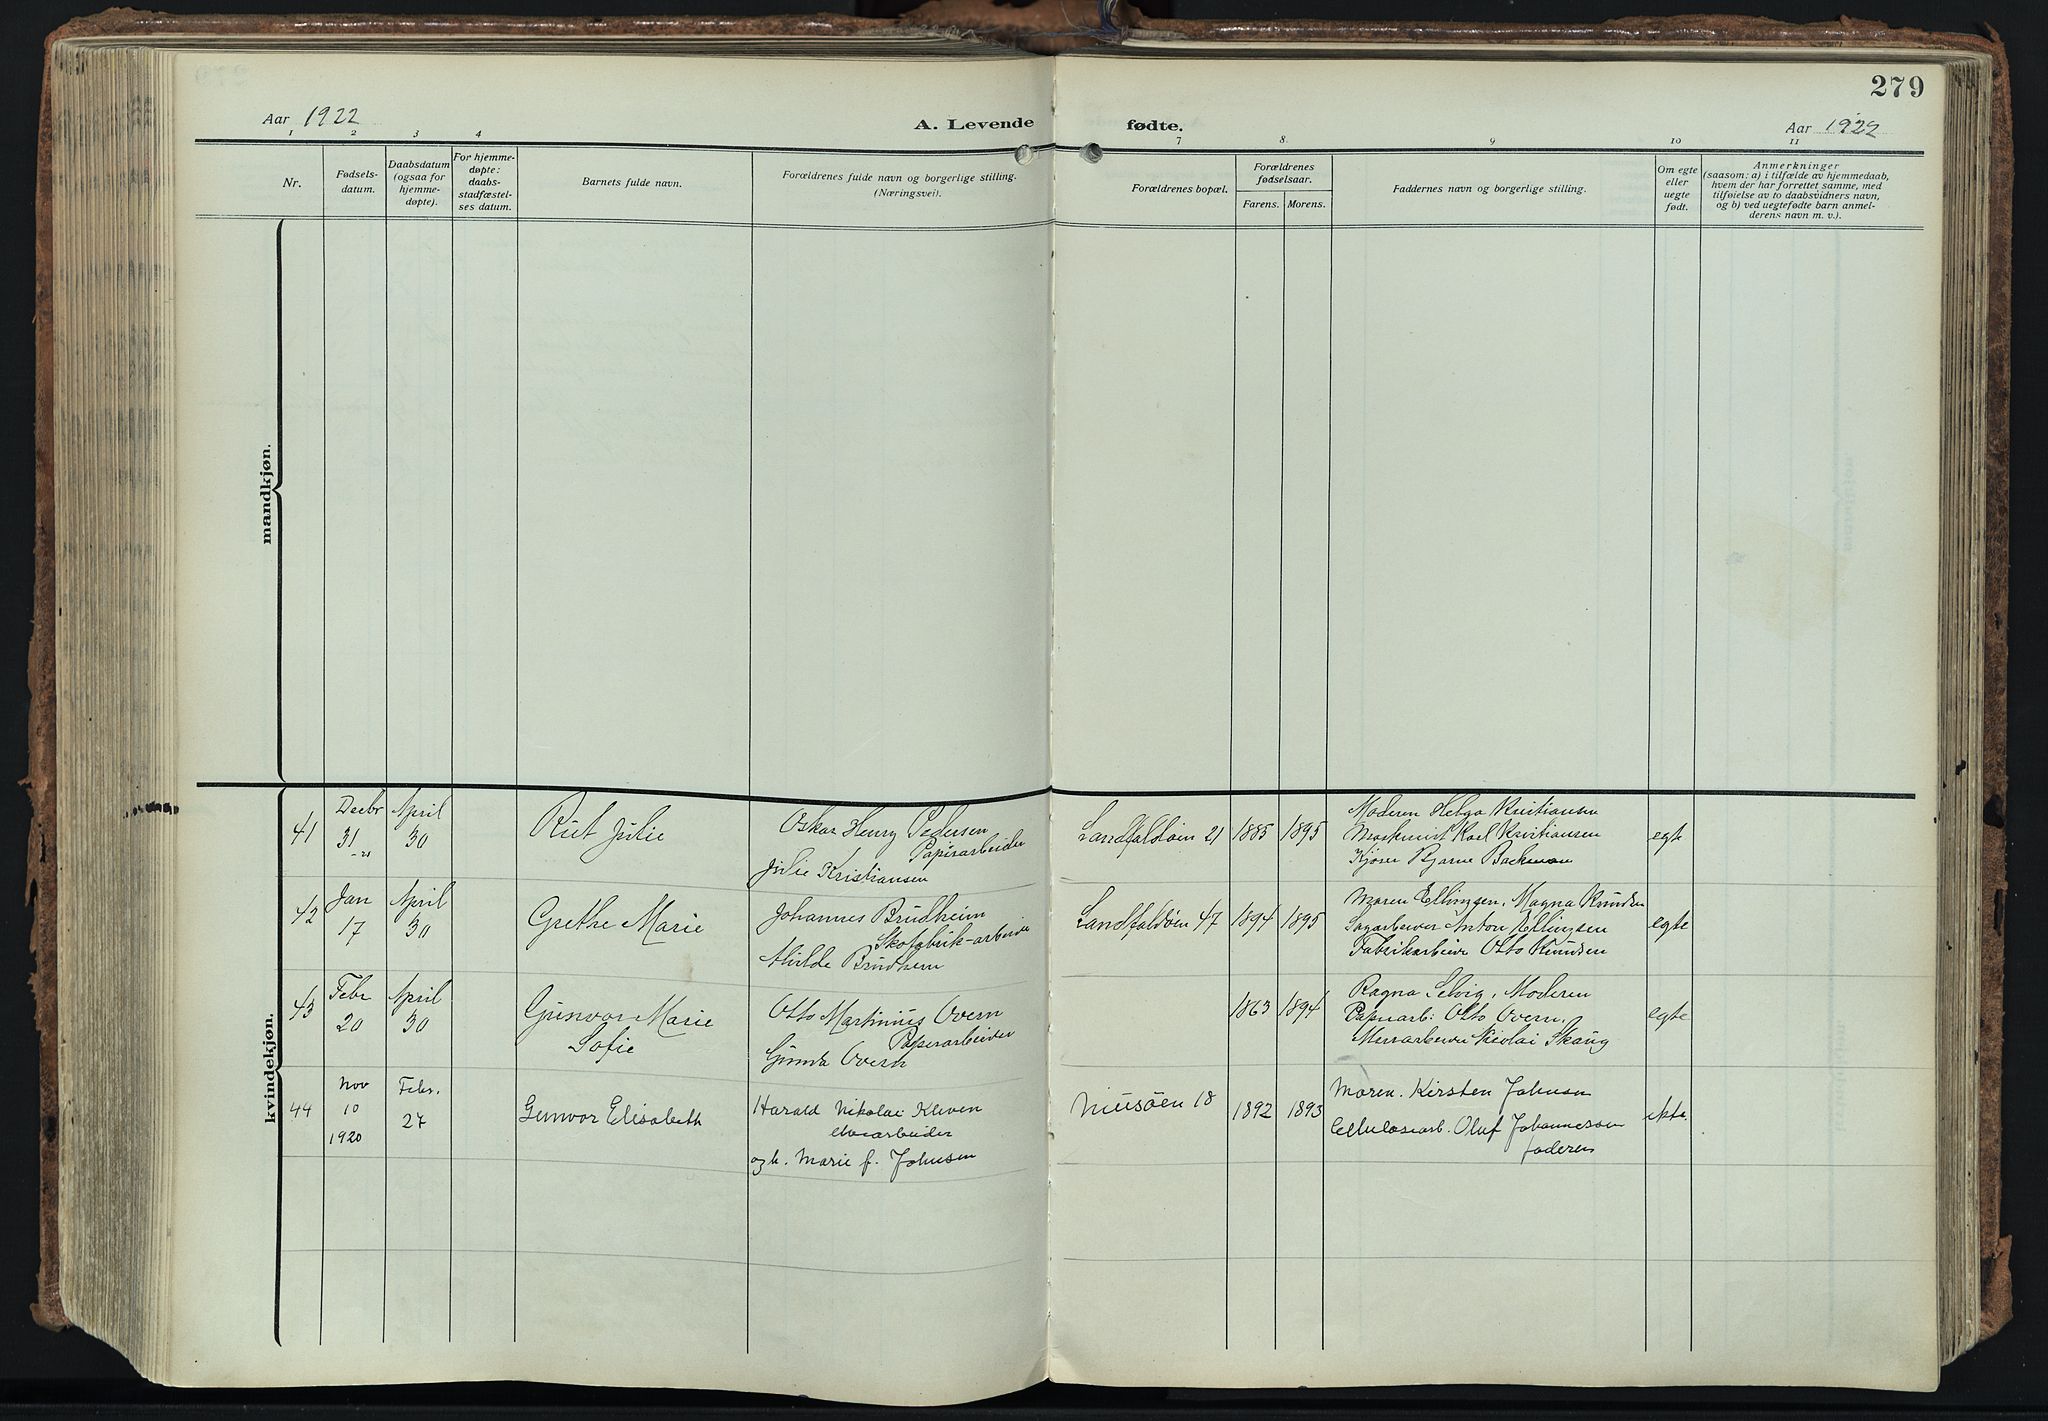 279
Aar 1922
A. Levende fødte.
Aar 1922
1 2 3 4 7 8. 9 10 11
Nr.
Fødsels-
datum.
Daabsdatum
(ogsaa for
hjemme-
døpte).
For hjemme-
døpte:
daabs-
stadfæstel-
ses datum.
Barnets fulde navn.
Forældrenes fulde navn og borgerlige stilling.
(Næringsvei).
Forældrenes bopæl.
Forældrenes
fødselsaar.
Farens. Morens.
Faddernes navn og borgerlige stilling.
Om egte
eller
uegte
født.
Anmerkninger
(saasom: a) i tilfælde av hjemmedaab,
hvem der har forrettet samme, med
tilføielse av to daabsvidners navn,
og b) ved uegtefødte barn anmel-
derens navn m. v.).
mandkjøn.
kvindekjøn.
41
Decbr
31
-21
April
30
Rut Julie
Oskar Henry Pedersen
Papirarbeider
Julie Kristiansen
Landfaldøen 21
1885
1895
Moderen Helga Kristiansen
Maskinist Karl Kristiansen
Kjører Bjarne Backman
egte
42
Jan
17
April
30
Grethe Marie
Johannes Brudheim
Skofabrik-arbeider
Alvilde Brudheim
Landfaldøen 47
1894
1895
Maren Ellingsen, Magna Knudsen
Anton Ellingsen
Fabrikarbeider Otto Knudsen
egte
43
Febr
20
April
30
Gunvor Marie
Sofie
Otto Martinius Overn
Papirarbeider
Gunda Overn
1863
1894
Ragna Selvig, Moderen
Papirarb: Otto Overn,
Nicolai Skaug
egte
44
Nov
10
1920
Febr.
27
Gunvor Elisabeth
Harald Nikolai Kleven
ogh. Marie f. Johnsen
18
1892
1893
Moren. Kirsten Johnsen
Cellulosearb. Oluf Johannesen
faderen
ekte.